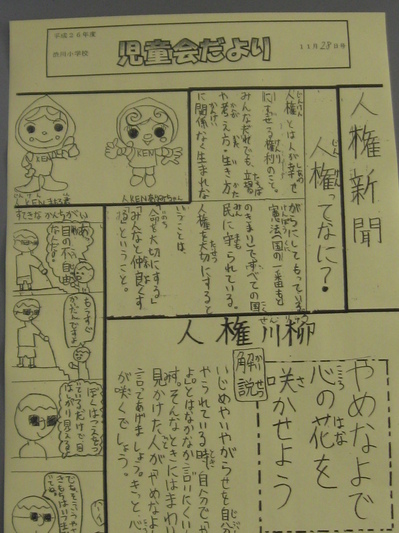 平成26年度
渋川小学校
児童会だより
11月28日号
人権新聞
人権ってなに?
人権とは人が幸せ
に生せる権利のこと。
みんなだれでも、立場
や考え方・生き方
に関係なく生まれな
がらにしてもっている。
憲法(国の一番もと
のきまり)ですべての国
民に守られている。
人権を大切にすると
いうことは、
「命を大切にする」
「みんなと仲良くす
る」ということ。
人KENまもる君
人KENあゆみちゃん
KEN
KEN
すてきなかんちがい
目の不自由
もうすぐ
かいだんですよ
ぼくはつえをもっ
ているだけで目
はばっちり見える
人権川柳
やめなよで
心の花を
咲かせよう
解説
いじめやいやがらせを自分
がやられている時、自分で「や
めてよ」とはなかなか言いにくい
そんなときにはまわり
見かけた人が「やめなよ」
言ってあげましょう。きっと心
が咲くでしょう。